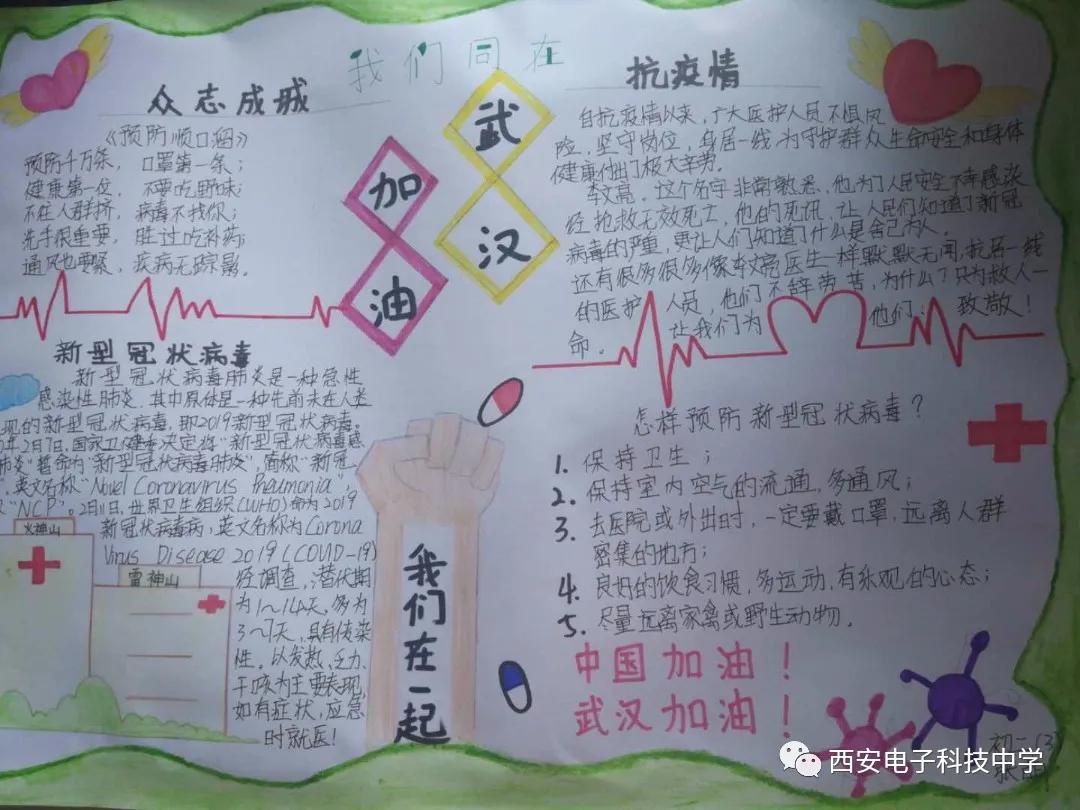 我们同在
众志成城
《预防顺口溜》
预防千万条，口罩第一条；
健康第一位，不要吃野味；
不在人群挤，病毒不找你；
洗手很重要，胜过吃补药；
通风也要紧，疾病无踪影。
加油
武汉
抗疫情
自抗疫情以来，广大医护人员不惧风
险，坚守岗位，身居一线，为守护群众生命安全和身体
健康付出了极大辛劳。
李文亮，这个名字非常熟悉，他为了人民安全不幸感染
经抢救无效死亡，他的死讯，让人民们知道了新冠
病毒的严重，更让人们知道了什么是舍己为人。
还有很多很多像李文亮医生一样默默无闻，抗居一线
的医护人员，他们不辞劳苦，为什么？只为救人一
命。让我们为他们：致敬！
新型冠状病毒
新型冠状病毒肺炎是一种急性
感染性肺炎，其中原体是一种先前未在人类
现的新型冠状病毒，即2019新型冠状病毒。
年2月7日，国家卫健委决定将“新型冠状病毒感
肺炎”暂命为“新型冠状病毒肺炎”，简称“新冠
，英文名称“Novel Coronavirus Pneumonia”，
“NCP”。2月11日，世界卫生组织(WHO)命为2019
新冠状病毒病，英文名称为Corona
Virus Disease 2019 (COVID-19)
经调查，潜伏期
为1～14天，多为
3～7天，具有传染
性。以发热、乏力、
干咳为主要表现，
如有症状，应急
时就医！
火神山
雷神山
我们在一起
怎样预防新型冠状病毒？
1. 保持卫生；
2. 保持室内空气的流通，多通风；
3. 去医院或外出时，一定要戴口罩，远离人群
密集的地方；
4. 良好的饮食习惯，多运动，有乐观的心态；
5. 尽量远离家禽或野生动物。
中国加油！
武汉加油！
初二(3)
西安电子科技中学